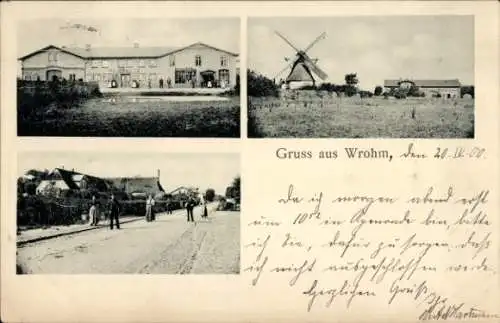 Gruss aus Wrohm, den 20. IX. 00.
Da ich morgen abend erst
um 10½ in Apenrade bin, bitte
ich Sie, dafür zu sorgen, daß
ich nicht ausgeschlossen werde.
Herzlichen Gruß Ihr
Hartmann